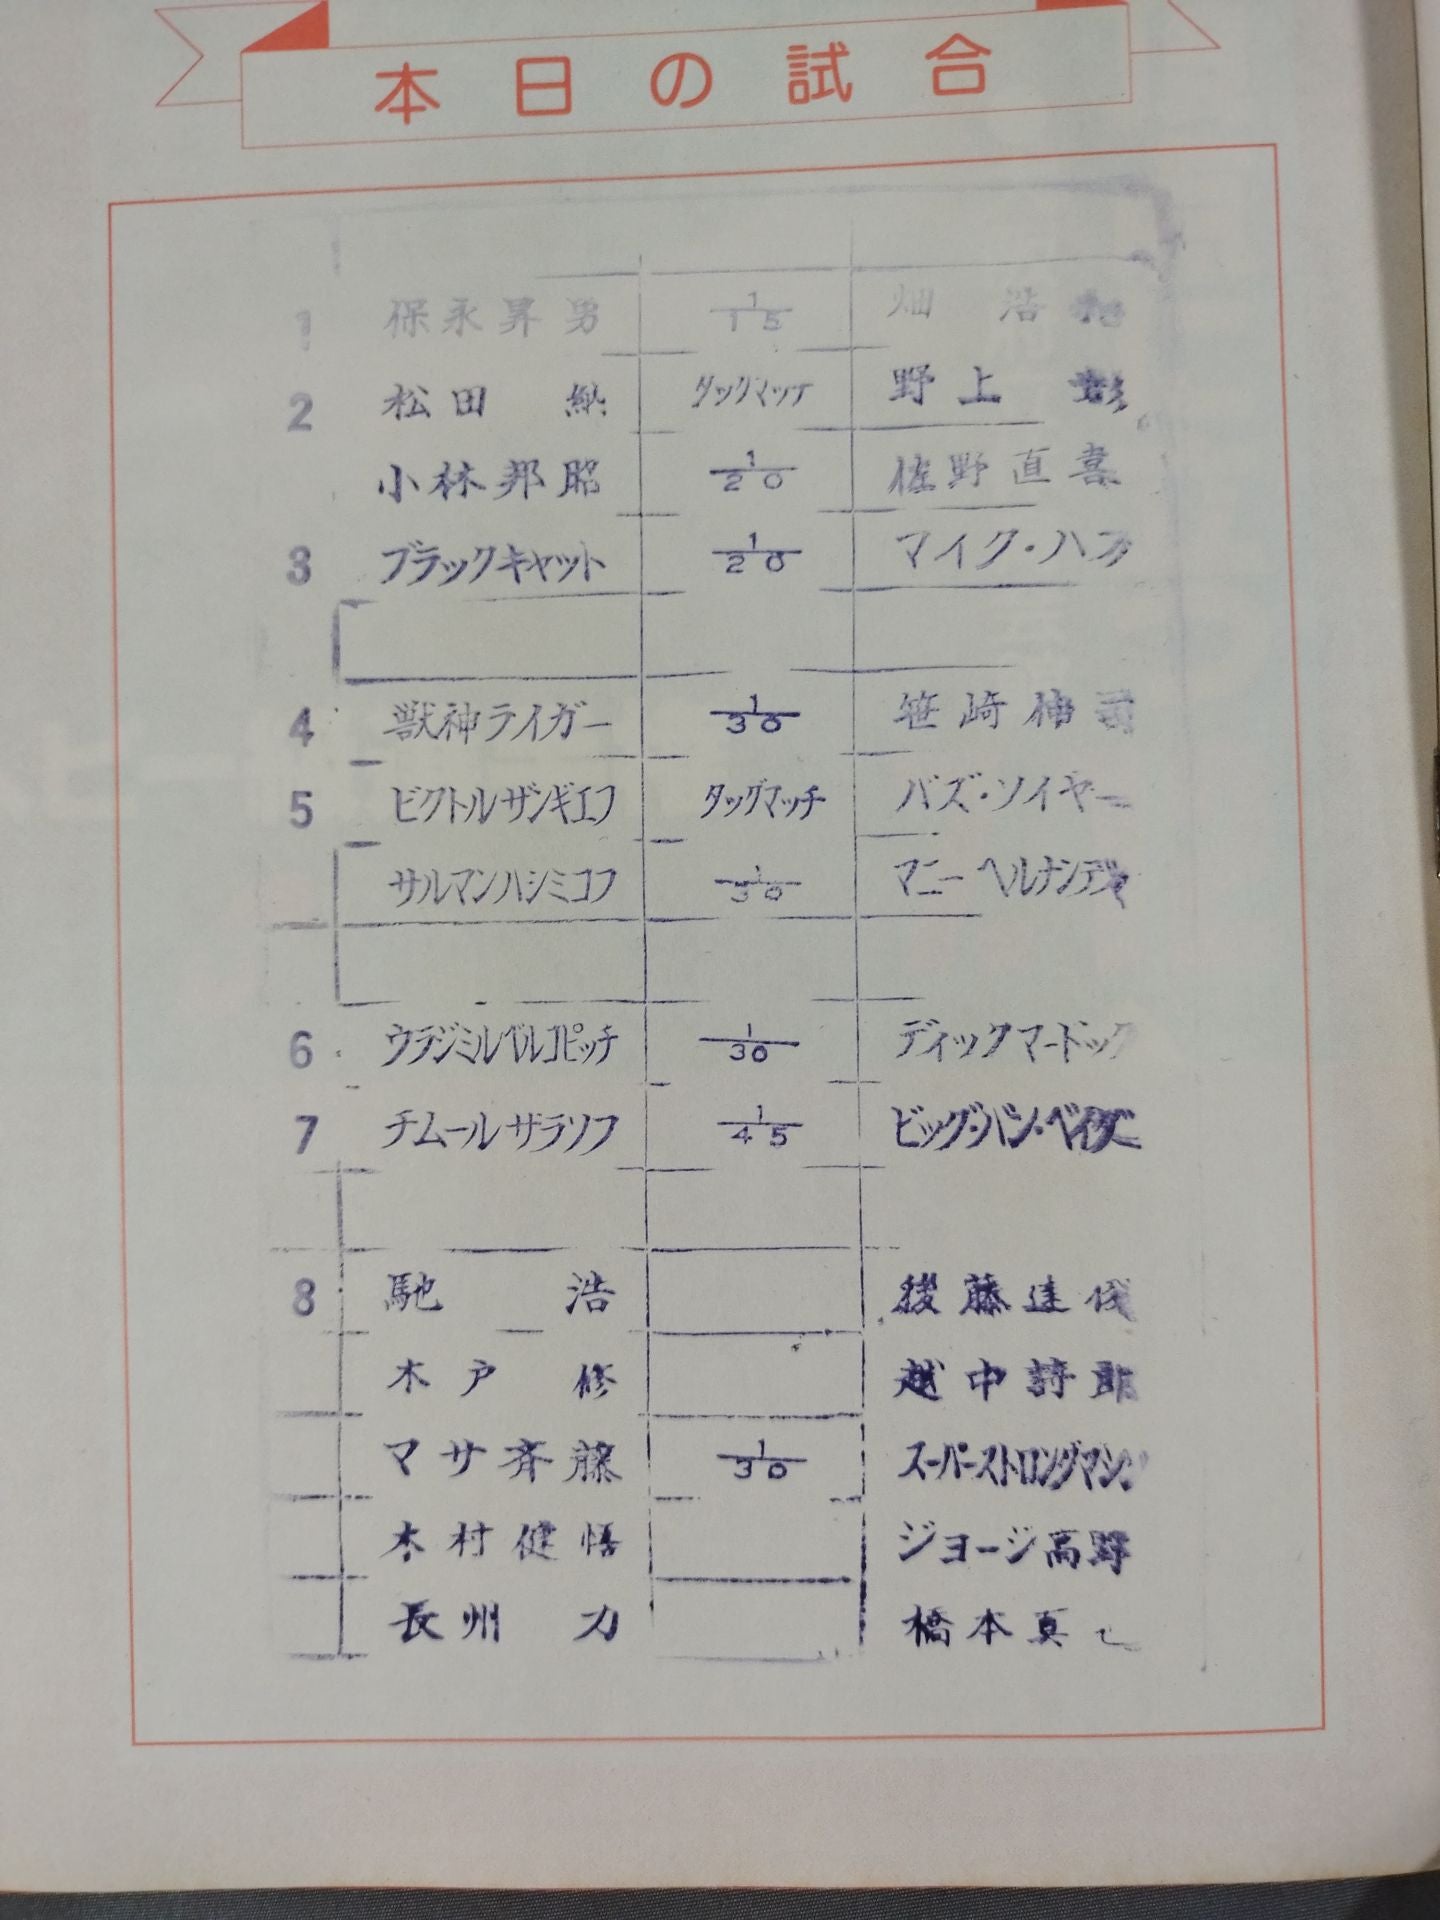 本日の試合
1 保永昇男 1/15 畑 浩和
2 松田 納 タッグマッチ 野上 彰
小林邦昭 1/20 佐野直喜
3 ブラックキャット 1/20 マイク・ハフ
4 獣神ライガー 1/30 笹崎伸司
5 ビクトルザンギエフ タッグマッチ バズ・ソイヤー
サルマンハシミコフ 1/30 マニーヘルナンデス
6 ウラジミルベルコビッチ 1/30 ディックマードック
7 チムールザラソフ 1/45 ビッグ・バン・ベイダー
8 馳 浩 後藤達俊
木戸 修 越中詩郎
マサ斉藤 1/30 スーパーストロングマシン
木村健悟 ジョージ高野
長州 力 橋本真也